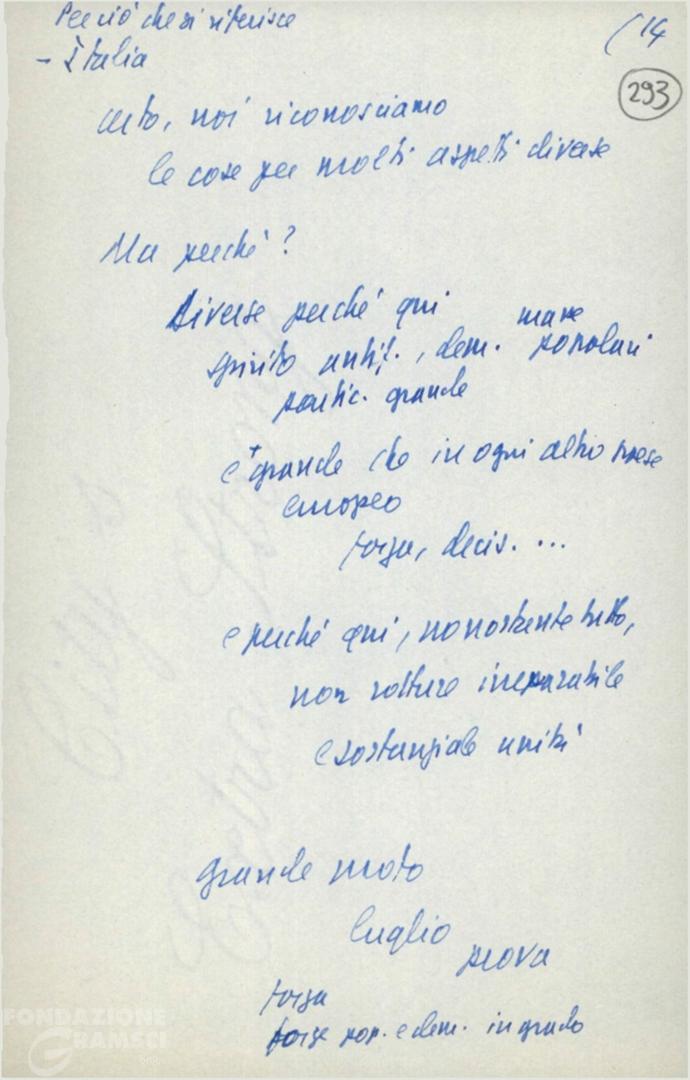 Per ciò che si riferisce
(14
- Italia
293
certo, noi riconosciamo
le cose per molti aspetti diverse
Ma perché?
Diverse perché qui
spirito antif., dem. masse popolari
partic. grande
e + grande che in ogni altro paese
europeo
forza, decis. ...
e perché qui, nonostante tutto,
non rotture irreparabile
e sostanziale unità
grande moto
luglio
prova
forza
forze pop. e dem. in grado
City's
Extra Strong
FONDAZIONE
GRAMSCI